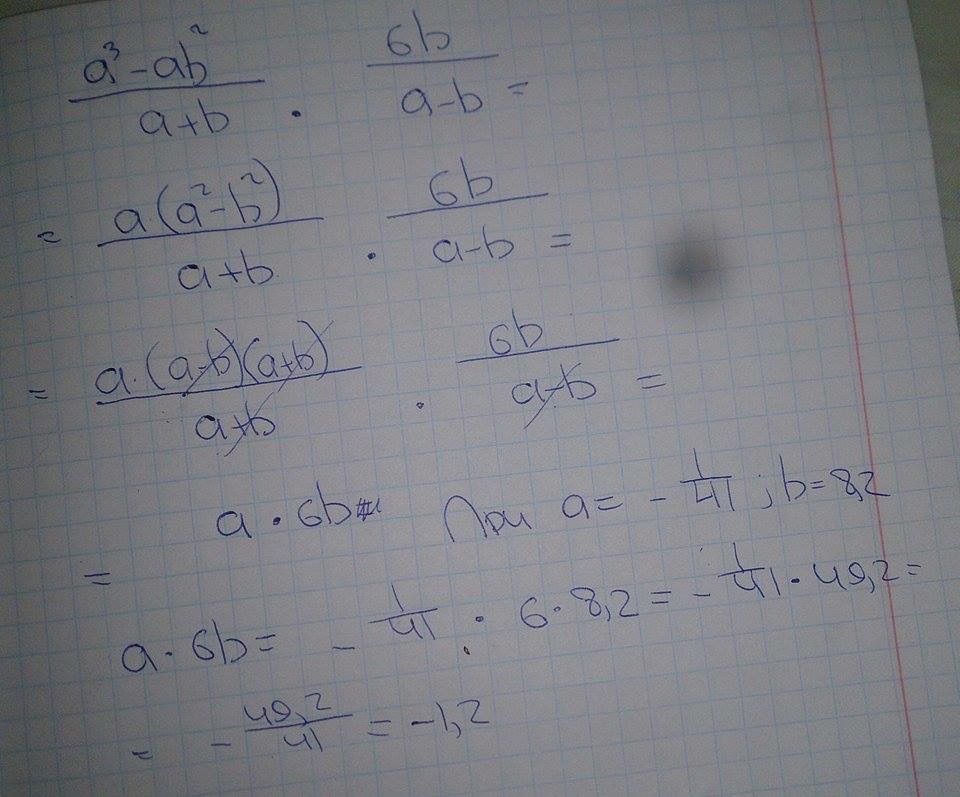 a³-ab²/a+b · 6b/a-b =
= a(a²-b²)/a+b · 6b/a-b =
= a·(a-b)(a+b)/a+b · 6b/a-b =
= a·6b При a = -1/41; b=8,2
a·6b = -1/41 · 6·8,2 = -1/41 · 49,2 =
= -49,2/41 = -1,2